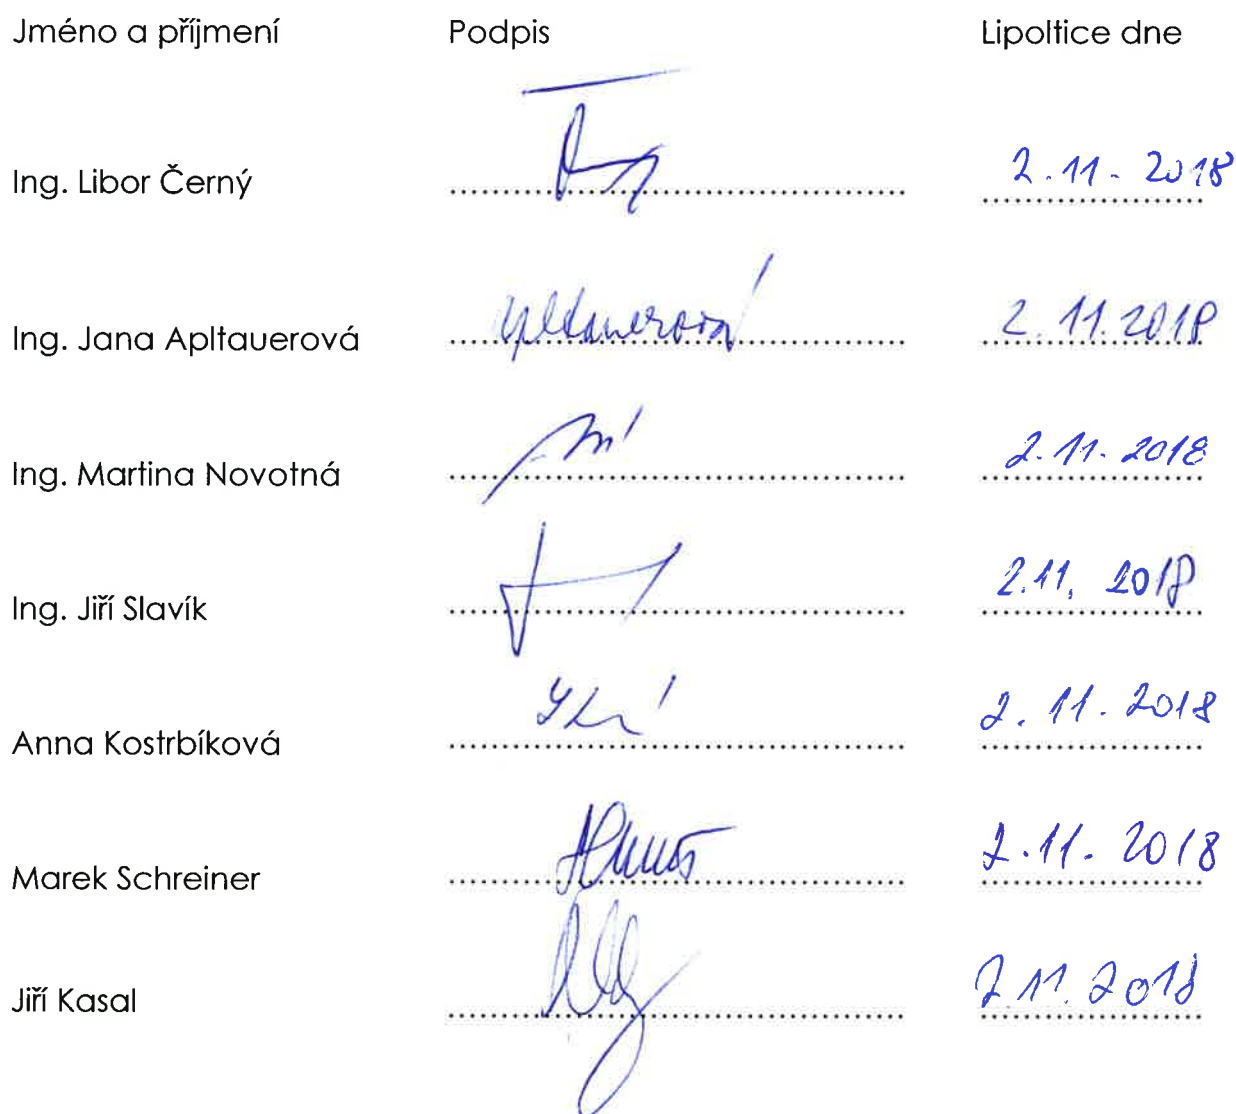 Jméno a příjmení Podpis Lipoltice dne
Ing. Libor Černý 2.11. 2018
Ing. Jana Apltauerová Apltauerová 2.11.2018
Ing. Martina Novotná 2.11.2018
Ing. Jiří Slavík 2.11. 2018
Anna Kostrbíková 2.11.2018
Marek Schreiner 2.11. 2018
Jiří Kasal 2.11.2018